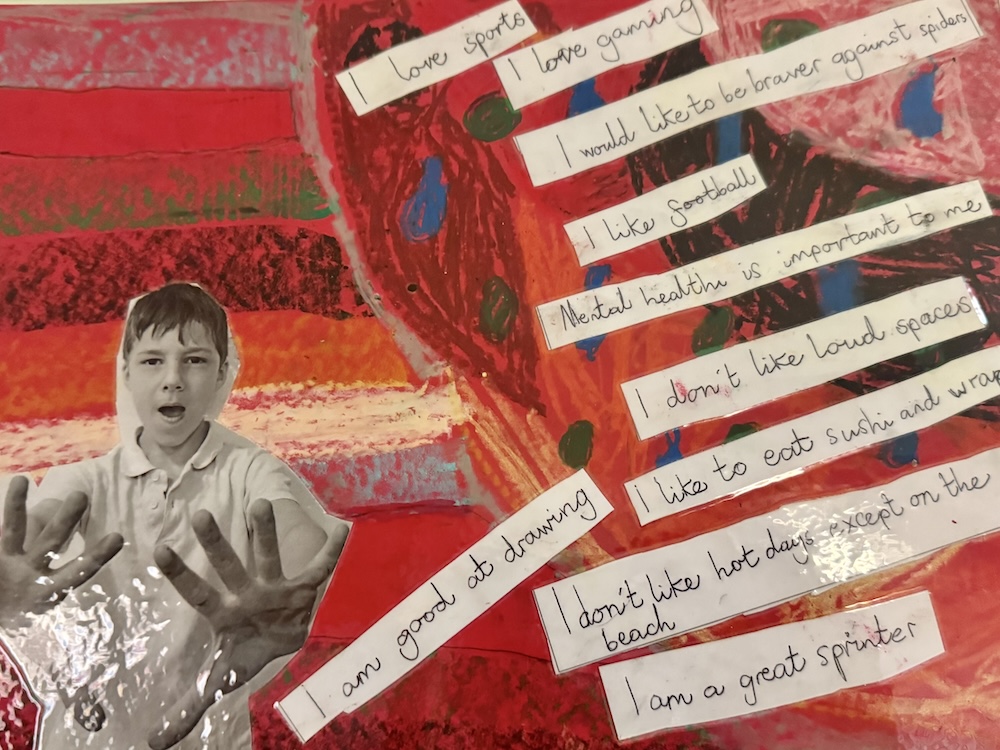 I love sports
I love gaming
I would like to be braver against spiders
I like football
Mental health is important to me
I don't like loud spaces
I like to eat sushi and wrap
I am good at drawing
I don't like hot days except on the
beach
I am a great sprinter